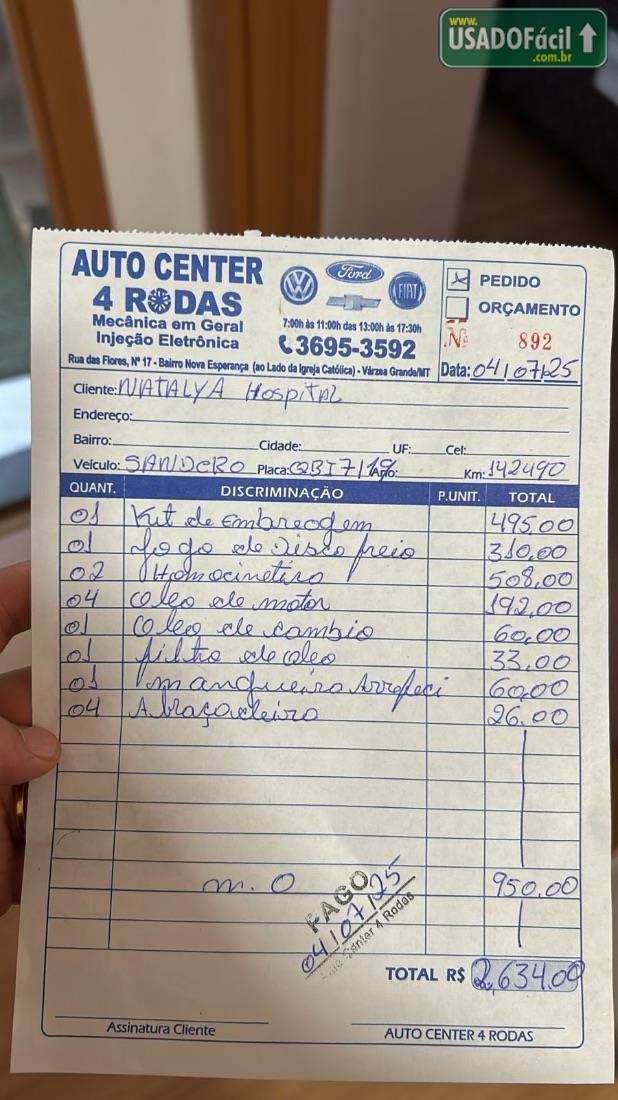 www.
USADOFácil
.com.br
AUTO CENTER
4 RODAS
Mecânica em Geral
Injeção Eletrônica
Ford
FIAT
7:00h às 11:00h das 13:00h às 17:30h
3695-3592
Rua das Flores, Nº 17 - Bairro Nova Esperança (ao Lado da Igreja Católica) - Várzea Grande/MT
PEDIDO
ORÇAMENTO
Nº 892
Data: 04/07/25
Cliente: NATALYA Hospital
Endereço:
Bairro: Cidade: UF: Cel:
Veículo: SANDERO Placa: QBI7119 Ano: Km: 142490
QUANT. DISCRIMINAÇÃO P.UNIT. TOTAL
01 Kit de Embreagem 495,00
01 Jogo de Disco freio 310,00
02 Homocinetico 508,00
04 oleo de motor 192,00
01 oleo de cambio 60,00
01 filtro de oleo 33,00
01 mangueira Arrefeci 60,00
04 Abraçadeira 26,00
m. O 950,00
PAGO
04/07/25
Auto Center 4 Rodas
TOTAL R$ 2,634,00
Assinatura Cliente
AUTO CENTER 4 RODAS